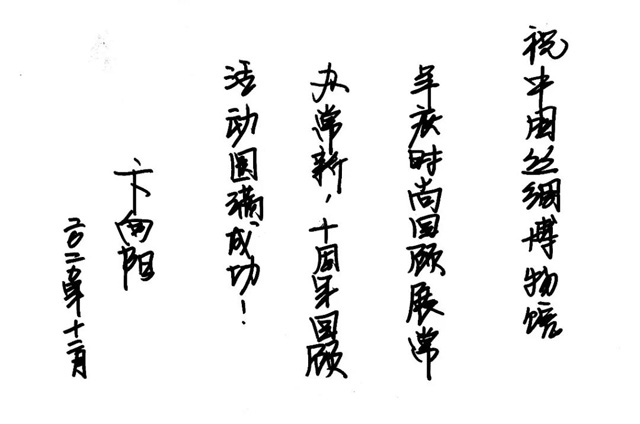 祝中国丝绸博物馆
年度时尚回顾展常
办常新，十周年回顾
活动圆满成功！
卞向阳
二〇二〇年十二月